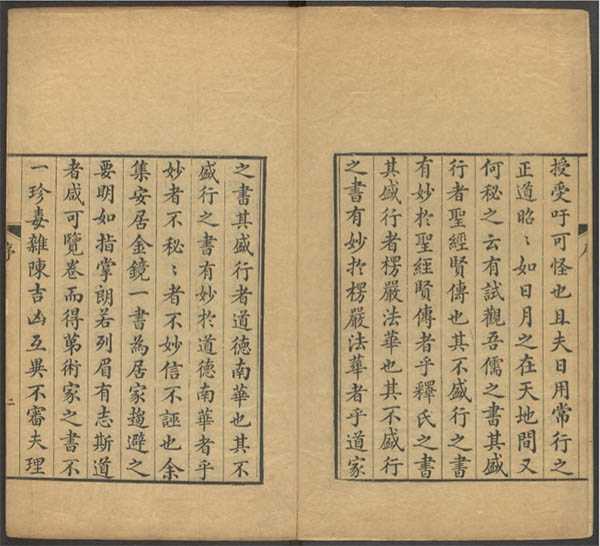 授受吁可怪也且夫日用常行之
正道昭〻如日月之在天地間又
何秘之云有試觀吾儒之書其盛
行者聖經賢傳也其不盛行之書
有妙於聖經賢傳者乎釋氏之書
其盛行者楞嚴法華也其不盛行
之書有妙於楞嚴法華者乎道家
之書其盛行者道德南華也其不
盛行之書有妙於道德南華者乎
妙者不秘〻者不妙信不誣也余
集安居金鏡一書為居家趨避之
要明如指掌朗若列眉有志斯道
者咸可覽卷而得苐術家之書不
一珍毒雜陳吉凶互異不審夫理
序
二